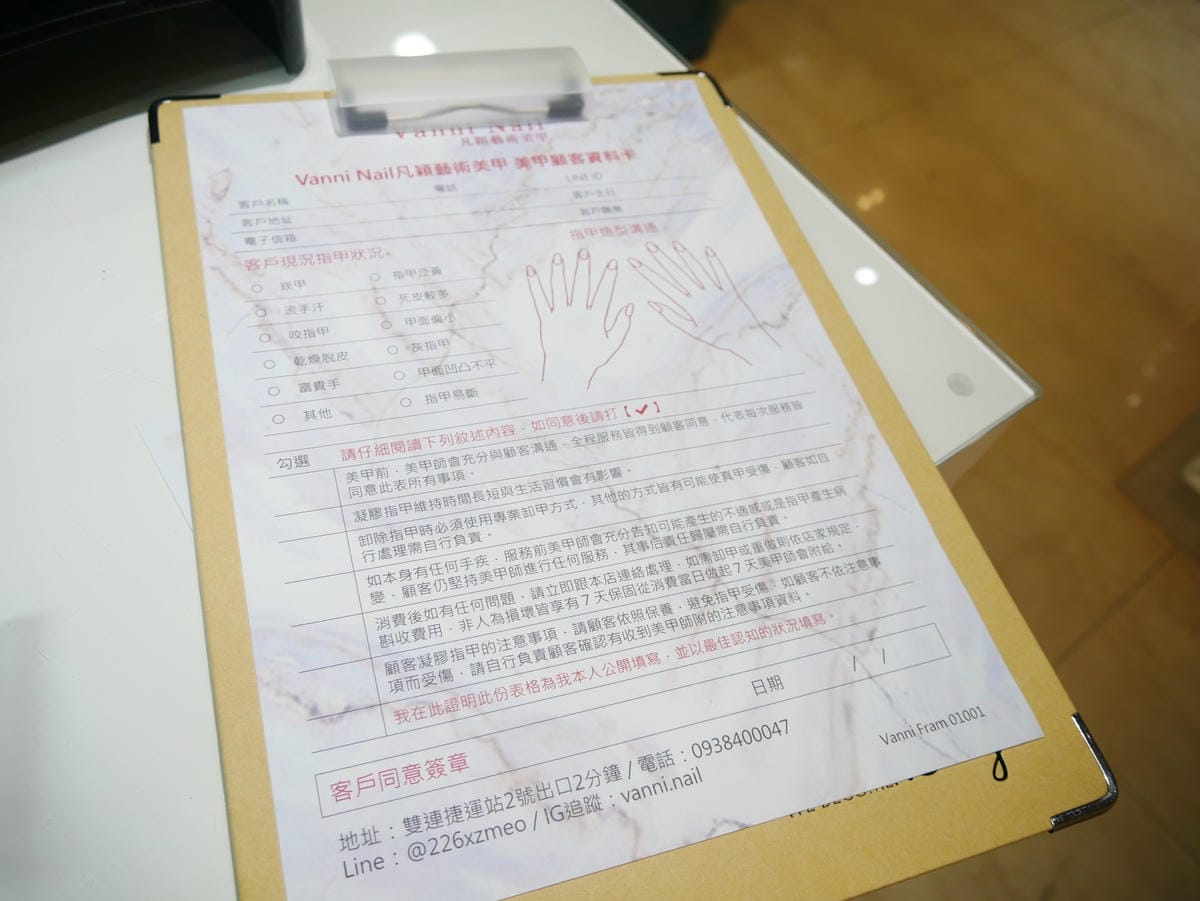 Vanni Nail
凡穎藝術美甲
Vanni Nail凡穎藝術美甲 美甲顧客資料卡
客戶名稱 電話 LINE ID
客戶地址 客戶生日
電子信箱 客戶職業
客戶現況指甲狀況。 指甲造型溝通
摳甲 指甲泛黃
流手汗 死皮較多
咬指甲 甲面偏小
乾燥脫皮 灰指甲
富貴手 甲面凹凸不平
其他 指甲易斷
勾選 請仔細閱讀下列敘述內容，如同意後請打【✓】
美甲前，美甲師會充分與顧客溝通，全程服務皆得到顧客同意，代表每次服務皆
同意此表所有事項。
凝膠指甲維持時間長短與生活習慣會有影響。
卸除指甲時必須使用專業卸甲方式，其他的方式皆有可能使真甲受傷，顧客如自
行處理需自行負責。
如本身有任何手疾，服務前美甲師會充分告知可能產生的不適感或是指甲產生病
變，顧客仍堅持美甲師進行任何服務，其事后責任歸屬需自行負責。
消費後如有任何問題，請立即跟本店連絡處理，如需卸甲或重做則依店家規定，
斟收費用，非人為損壞皆享有7天保固從消費當日做起7天美甲師會附給。
顧客凝膠指甲的注意事項，請顧客依照保養，避免指甲受傷，如顧客不依注意事
項而受傷，請自行負責顧客確認有收到美甲師附的注意事項資料。
我在此證明此份表格為我本人公開填寫，並以最佳認知的狀況填寫。
客戶同意簽章 日期 / /
地址：雙連捷運站2號出口2分鐘 / 電話：0938400047
Line：@226xzmeo / IG追蹤：vanni.nail
Vanni Fram 01001